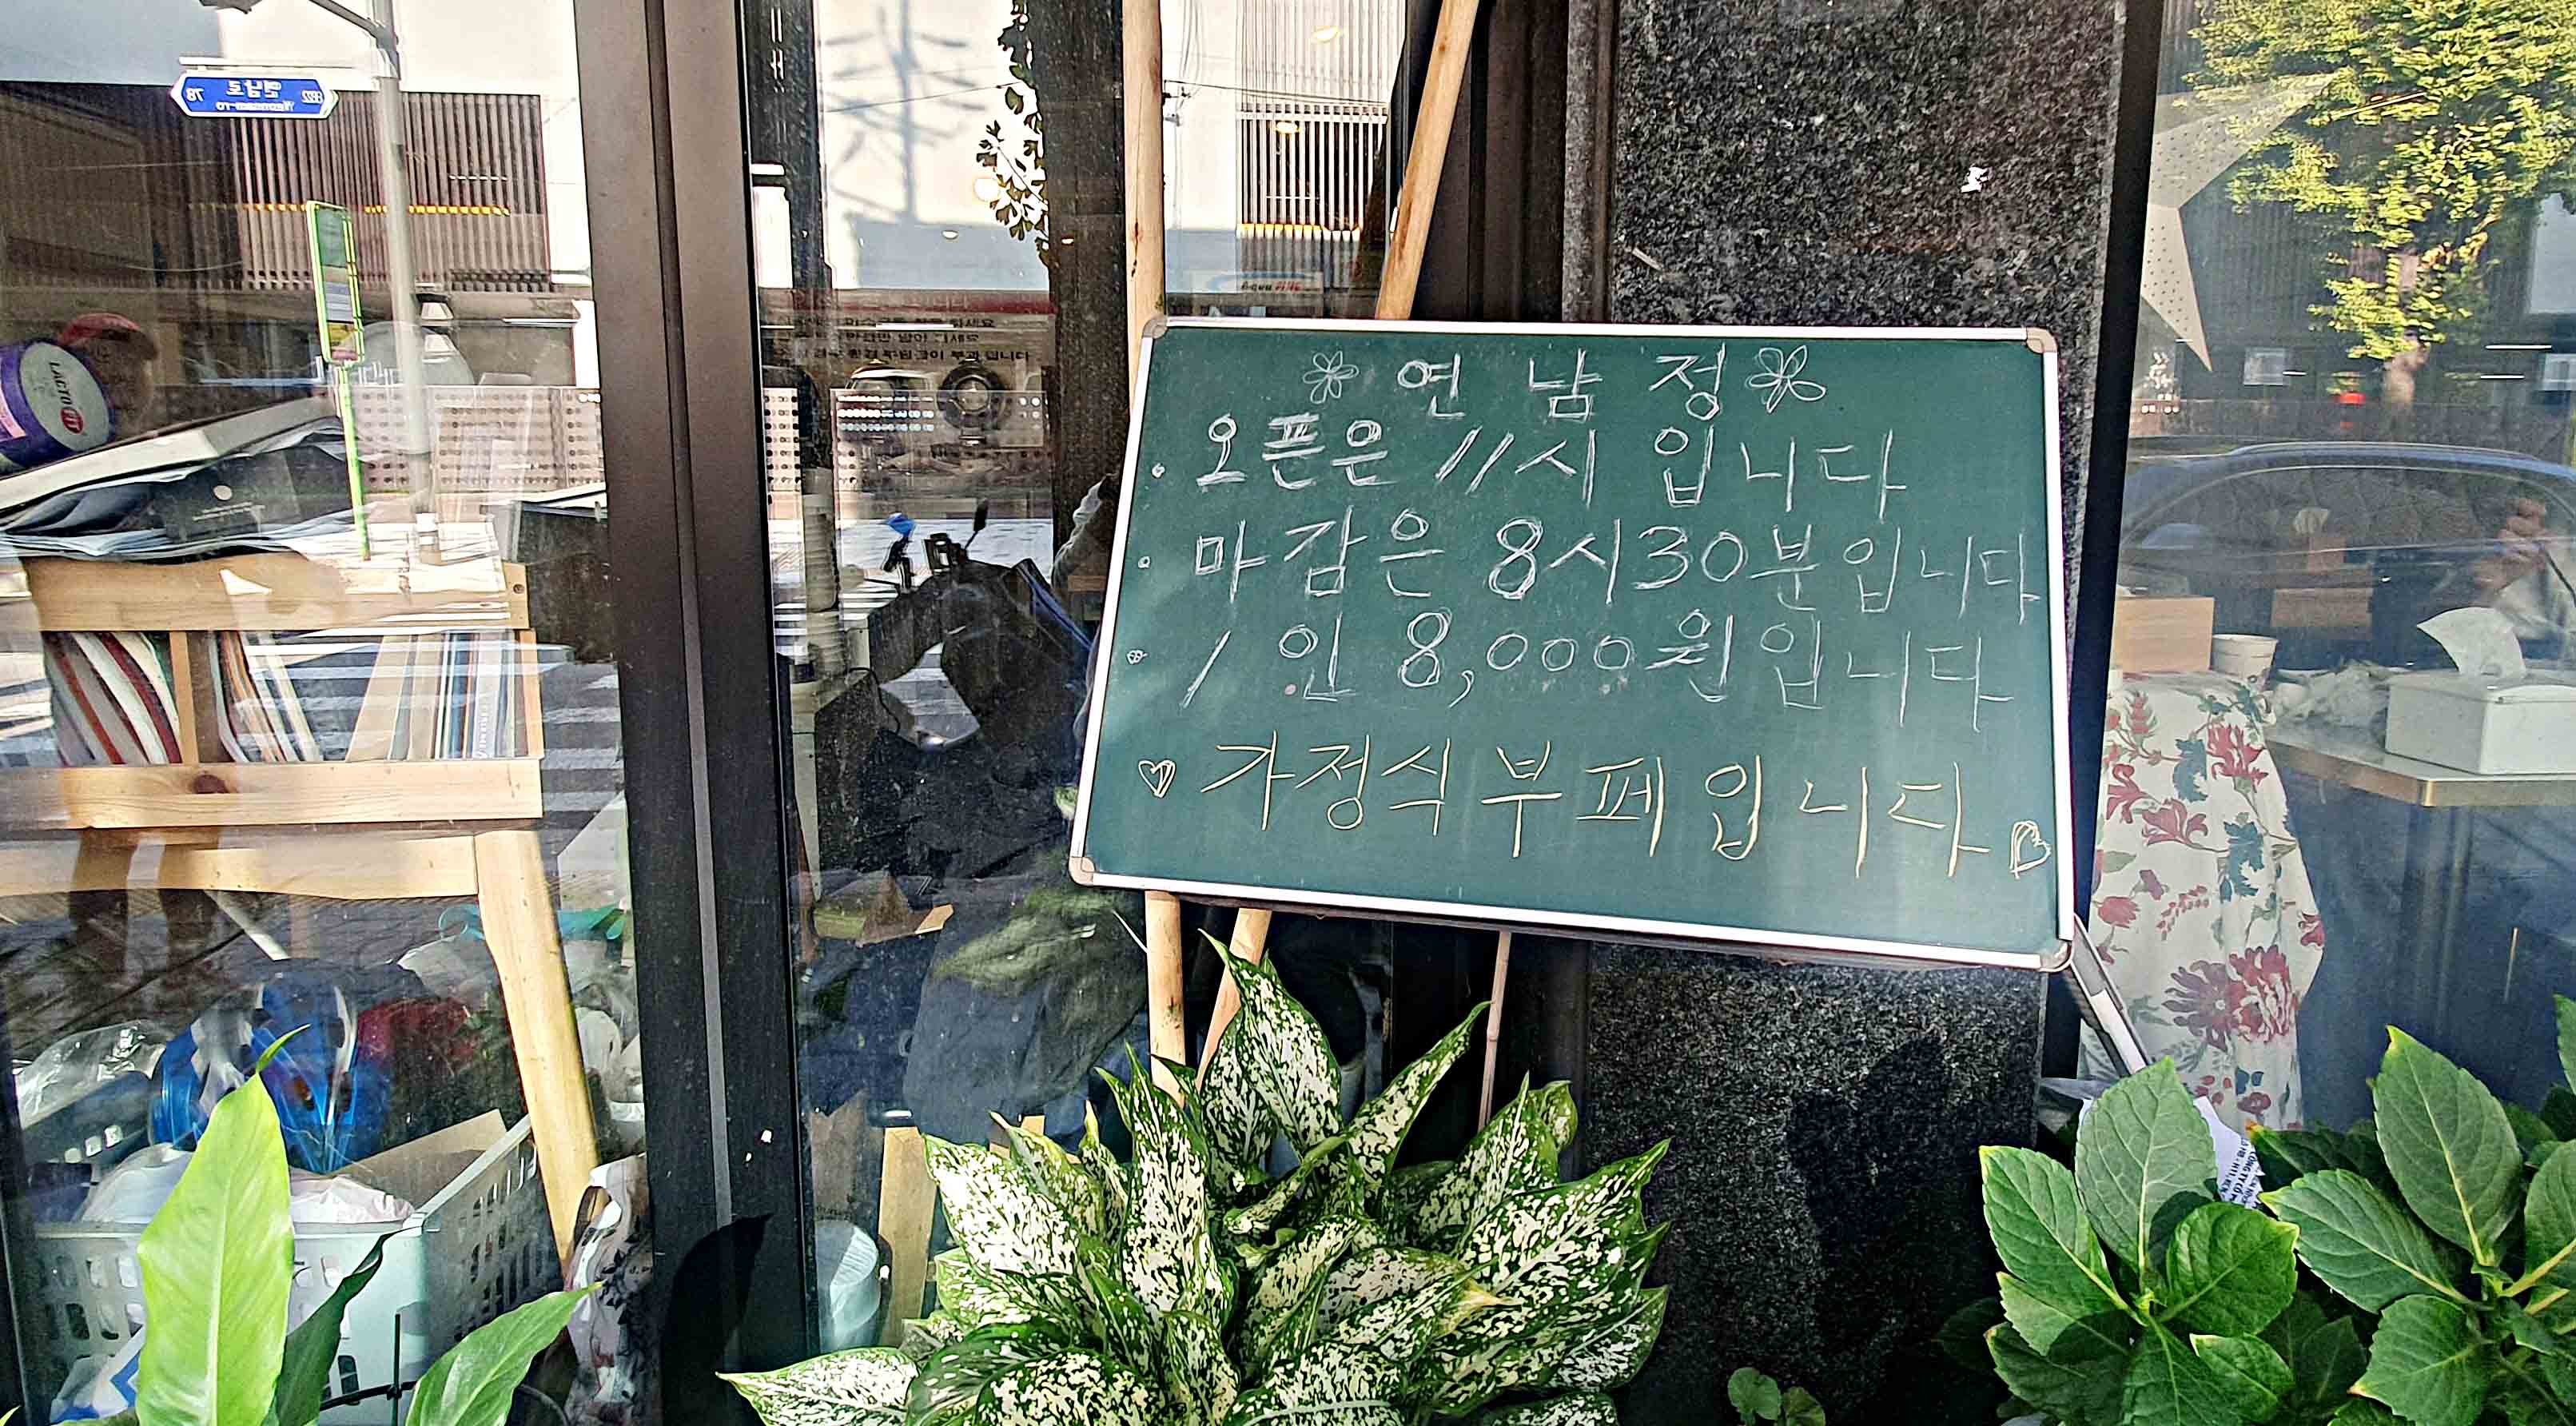 연남정
오픈은 11시 입니다
마감은 8시30분입니다
1인 8,000원입니다
가정식 부페입니다
LACTO FIT
78 연남로
Yeonnam-ro